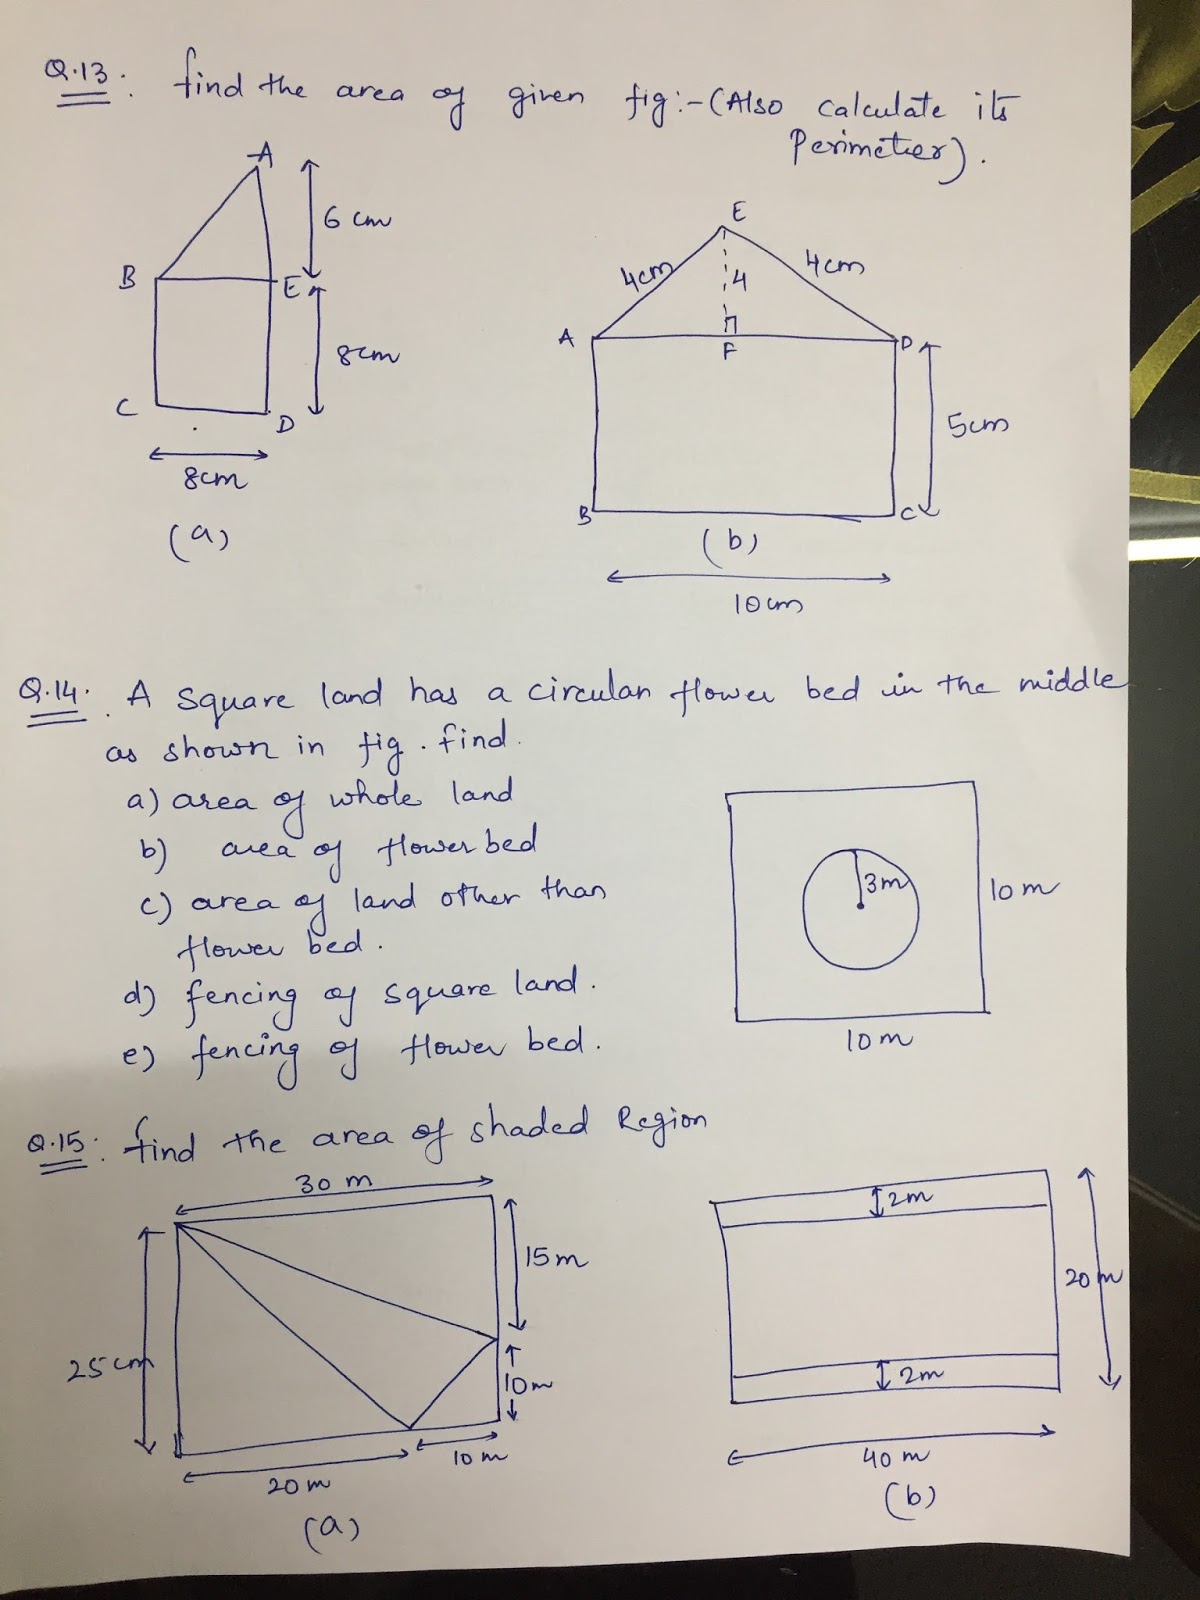 Q.13. find the area of given fig:-(Also calculate its
Perimeter).
A
6 cm
B
E
8cm
C
D
8cm
(a)
E
4cm
4
4cm
A
F
D
5cm
B
C
(b)
10cm
Q.14. A square land has a circular flower bed in the middle
as shown in fig. find.
a) area of whole land
b) area of flower bed
c) area of land other than
flower bed.
d) fencing of square land.
e) fencing of flower bed.
3m
10 m
10 m
Q.15. find the area of shaded Region
30 m
15 m
25 cm
10m
10 m
20 m
(a)
2m
20 m
2m
40 m
(b)